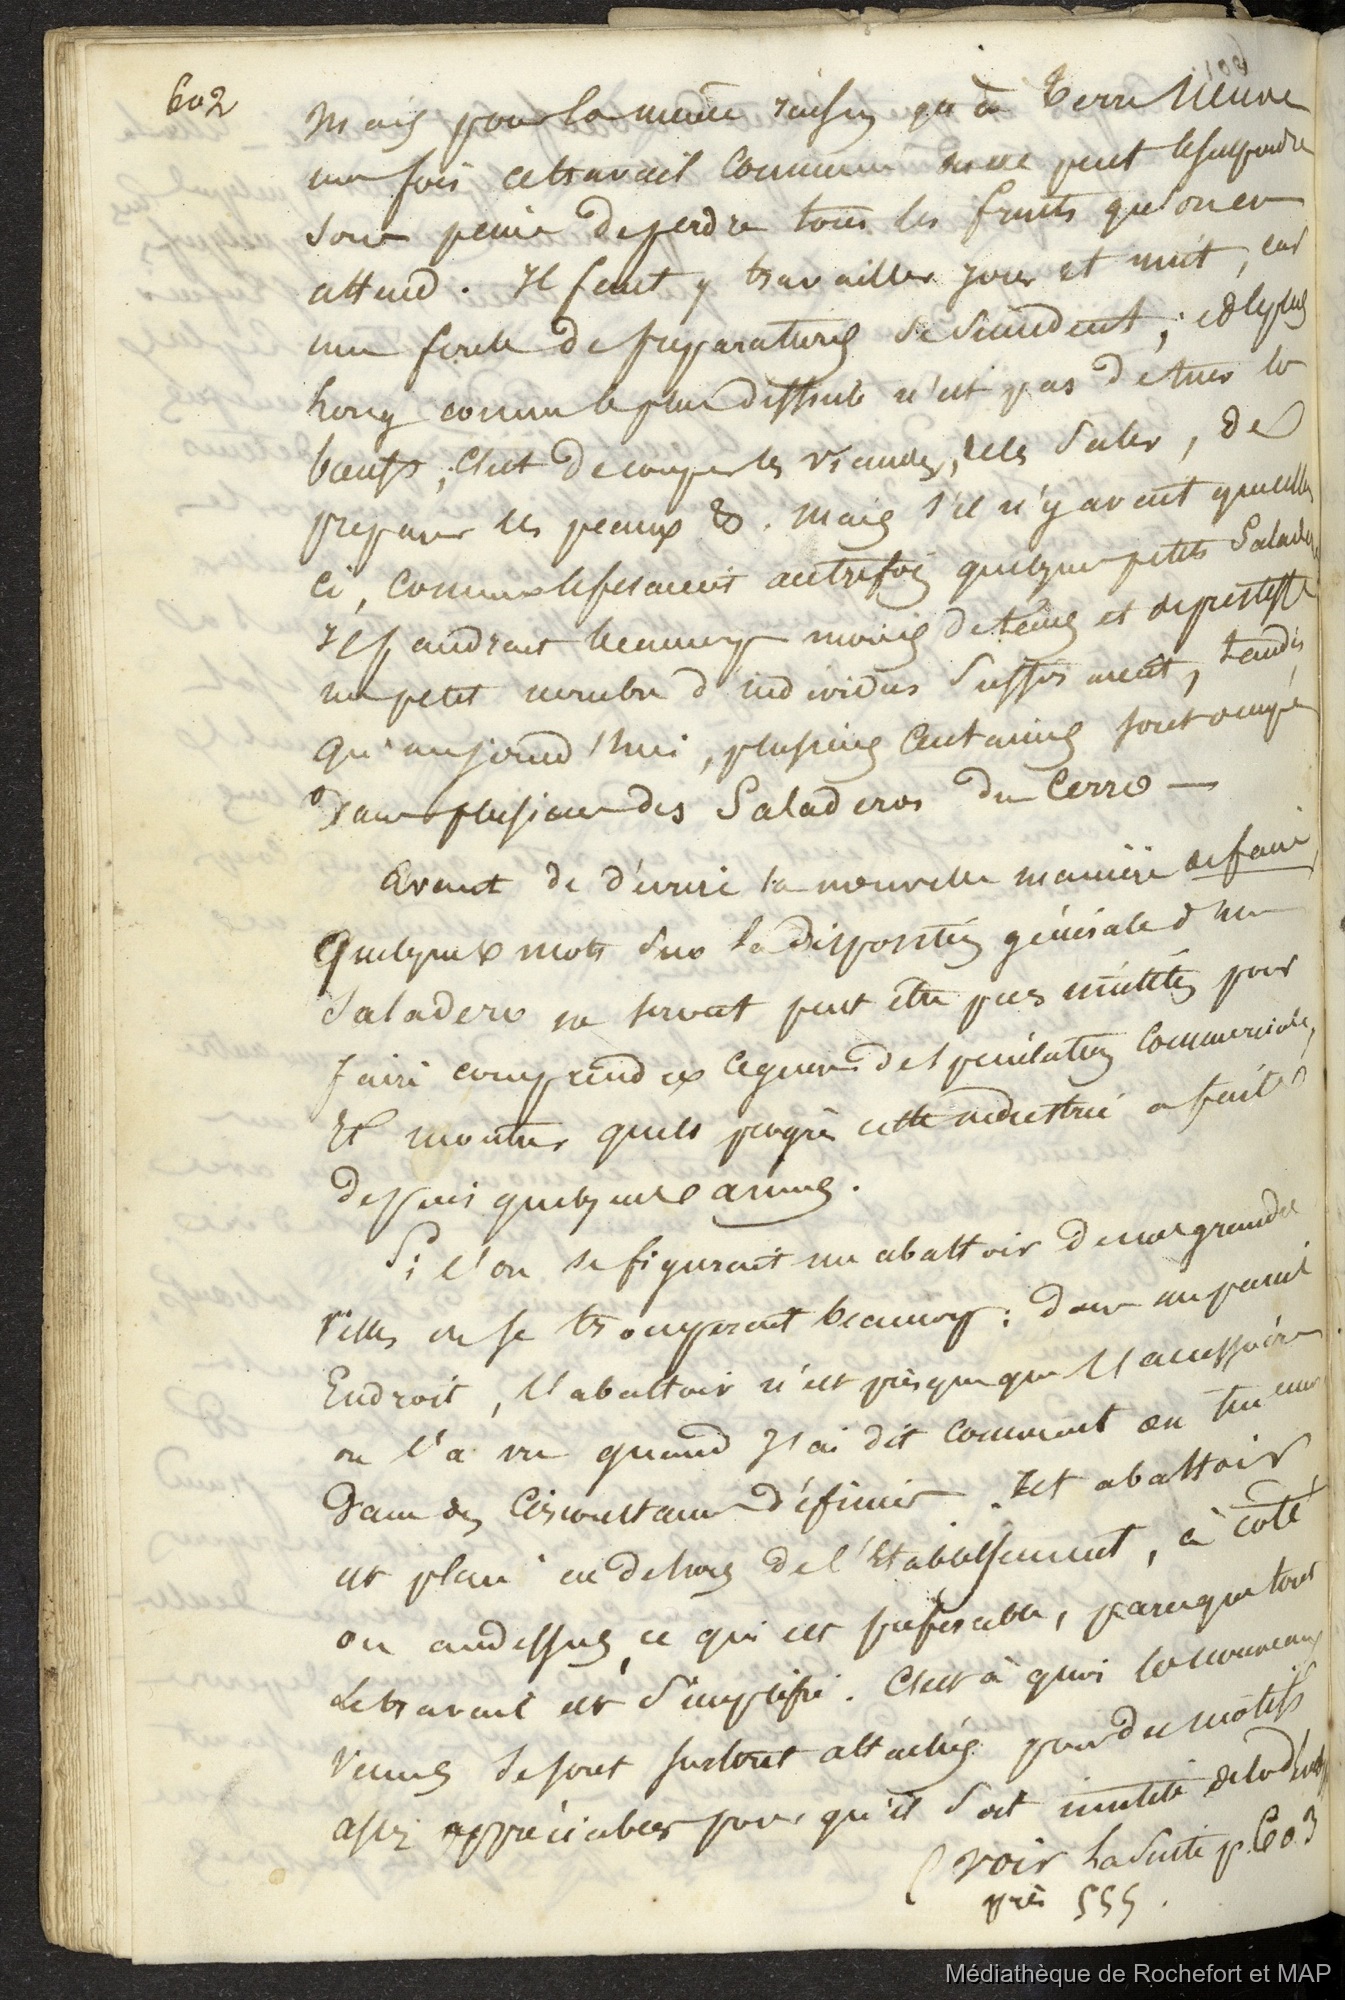 602
Mais pour la même raison qu'à Terre Neuve
une fois ce travail commencé on ne peut le suspendre
sous peine de perdre tous les fruits qu'on en
attend. Il faut y travailler jour et nuit, car
une foule de préparatifs se succèdent, et le plus
long comme le plus difficile n'est pas de tuer les
boeufs, c'est de couper les viandes, de les saler, de
preparer les peaux &. Mais s'il n'y avait
ci, comme le fesaient autrefois quelques petits Saladeros
il faudrait beaucoup moins de tems et de prestesse
un petit nombre d'individus suffisaient, tandis
qu'aujourd'hui, plusieurs centaines sont occupés
dans plusieurs des Saladeros du Cerro —
Avant de décrire la nouvelle manière de faire,
quelques mots sur la disposition générale d'un
Saladero ne seront peut être pas inutiles pour
faire comprendre ce genre de spéculation commerciale,
et montrer quels progrès cette industrie a faits
depuis quelques années.
Si l'on se figurait un abattoir de nos grandes
villes on se tromperait beaucoup : dans un pareil
Endroit, l'abattoir n'est presque que l'accessoire
on l'a vu quand j'ai dit comment on tue
dans des circonstances définies. Cet abattoir
est placé en dehors de l'établissement, à côté
ou audessus, ce qui est préférable, parceque tout
le travail est simplifié. C'est à quoi les nouveaux
venus se sont surtout attachés pour des motifs
assez appréciables pour qu'il soit inutile de les
(voir la suite p. 603
près 555.
Médiathèque de Rochefort et MAP